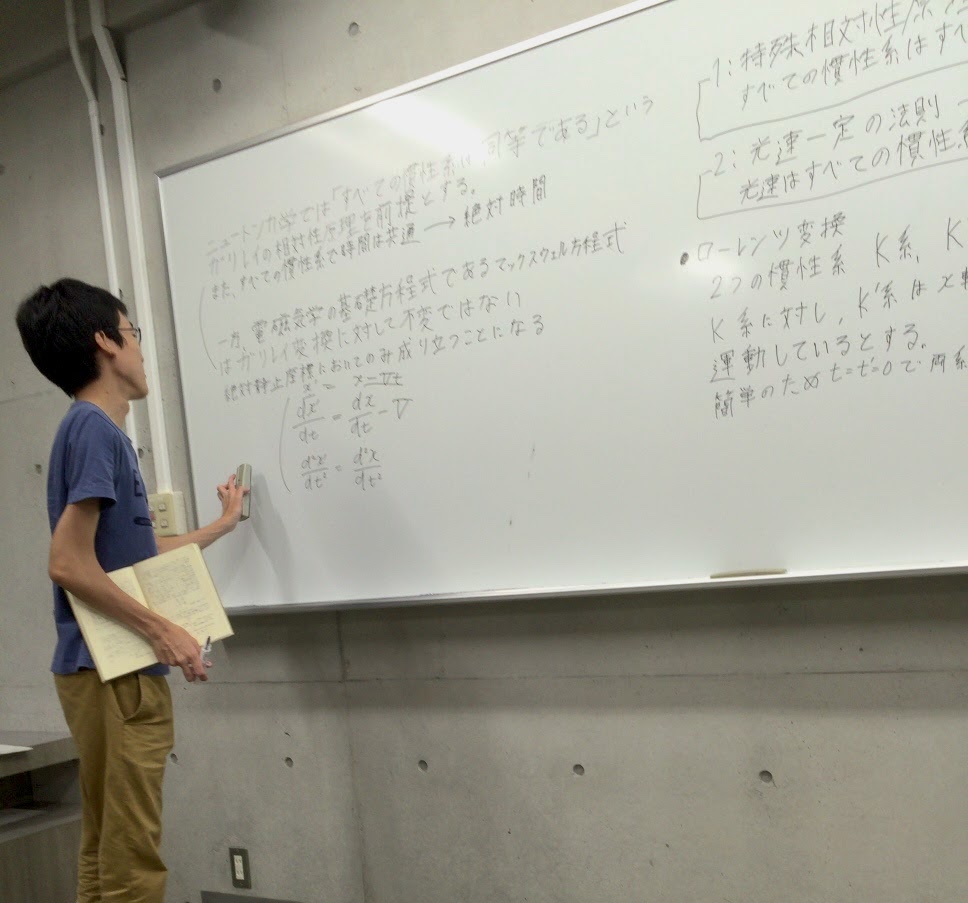 ニュートン力学では「すべての慣性系は同等である」という
ガリレイの相対性原理を前提とする。
また、すべての慣性系で時間は共通 → 絶対時間
一方、電磁気学の基礎方程式であるマックスウェル方程式
はガリレイ変換に対して不変ではない
絶対静止座標においてのみ成り立つことになる
x' = x - Vt
dx'/dt = dx/dt - V
d²x'/dt² = d²x/dt²
1: 特殊相対性原
すべての慣性系はすべ
2: 光速一定の法則
光速はすべての慣性系
• ローレンツ変換
2つの慣性系 K系, K
K系に対し, K'系は x軸
運動しているとする。
簡単のため t=t'=0 で両系